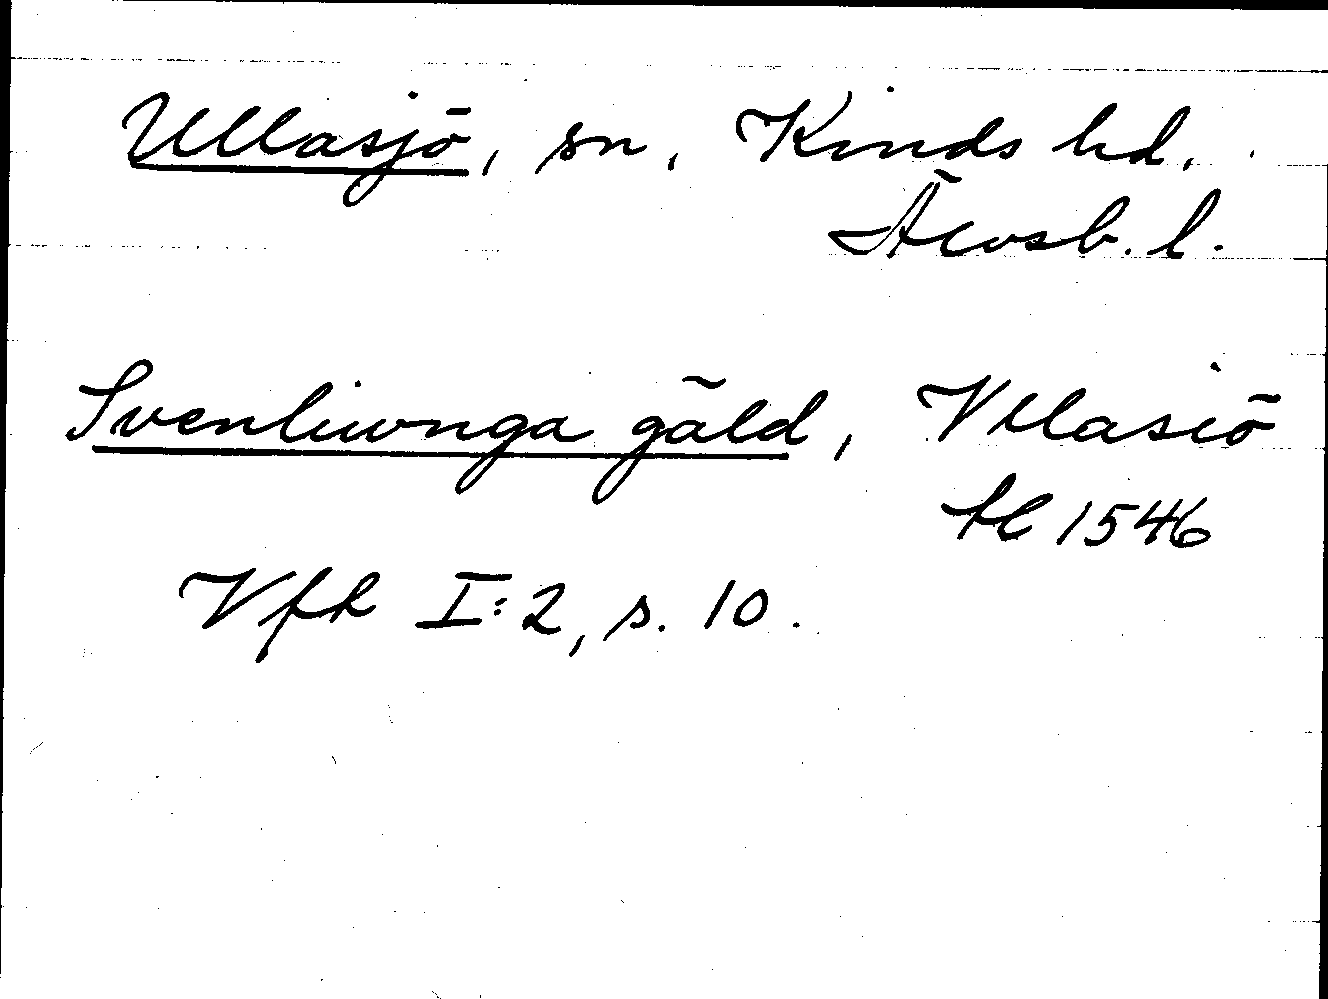 Ullasjö, sn, Kinds hd,
Älvsb. l.
Svenliwnga gäld, Vllasiö
tl 1546
Vfr I:2, s. 10.